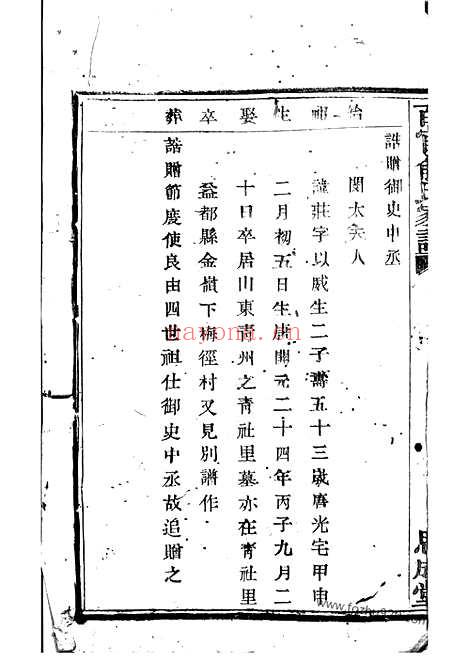 誥贈御史中丞
關太夫人
諱莊字以威生二子壽五十三歲唐光宅甲申
二月初五日生唐開元二十四年丙子九月二
十日卒居山東青州之青社里墓亦在青社里
益都縣金嶺下梅徑村又見別譜作
誥贈節度使良由四世祖仕御史中丞故追贈之
始
生
娶
卒
葬
思成堂
nayona.cn